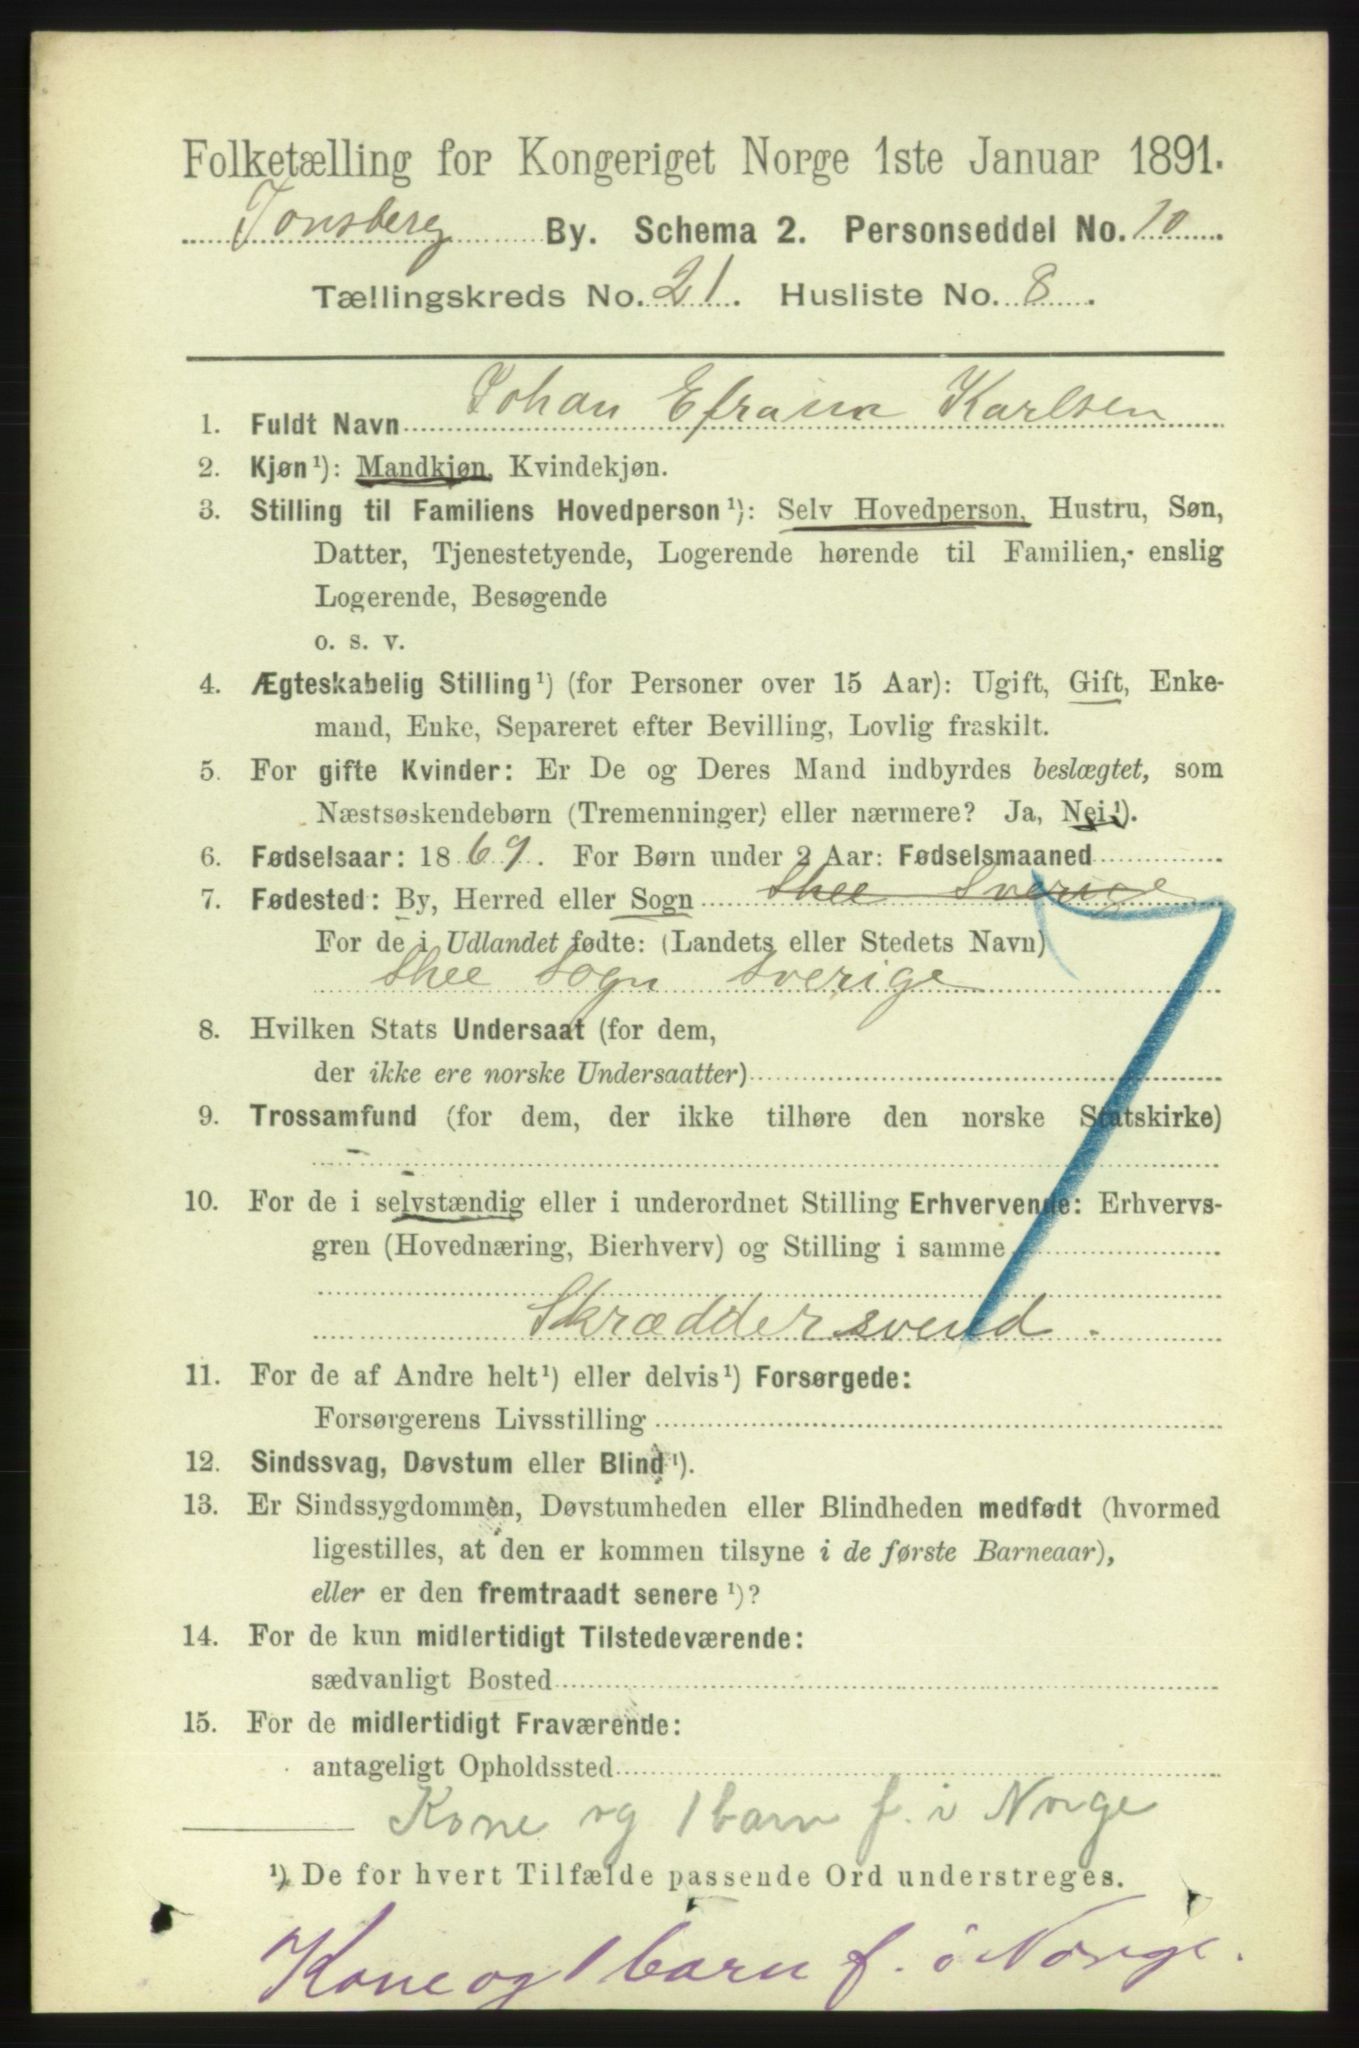 Folketælling for Kongeriget Norge 1ste Januar 1891.
Tønsberg By. Schema 2. Personseddel No. 10.
Tællingskreds No. 21. Husliste No. 8.
1. Fuldt Navn Johan Efraim Karlsen
2. Kjøn¹): Mandkjøn, Kvindekjøn.
3. Stilling til Familiens Hovedperson¹): Selv Hovedperson, Hustru, Søn,
Datter, Tjenestetyende, Logerende hørende til Familien, enslig
Logerende, Besøgende
o. s. v.
4. Ægteskabelig Stilling¹) (for Personer over 15 Aar): Ugift, Gift, Enke-
mand, Enke, Separeret efter Bevilling, Lovlig fraskilt.
5. For gifte Kvinder: Er De og Deres Mand indbyrdes beslægtet, som
Næstsøskendebørn (Tremenninger) eller nærmere? Ja, Nei¹).
6. Fødselsaar: 1869. For Børn under 2 Aar: Fødselsmaaned
7. Fødested: By, Herred eller Sogn Skee Sverige
For de i Udlandet fødte: (Landets eller Stedets Navn)
Skee Sogn Sverige
8. Hvilken Stats Undersaat (for dem,
der ikke ere norske Undersaatter)
9. Trossamfund (for dem, der ikke tilhøre den norske Statskirke)
10. For de i selvstændig eller i underordnet Stilling Erhvervende: Erhvervs-
gren (Hovednæring, Bierhverv) og Stilling i samme
Skræddersvend.
11. For de af Andre helt¹) eller delvis¹) Forsørgede:
Forsørgerens Livsstilling
12. Sindssvag, Døvstum eller Blind¹).
13. Er Sindssygdommen, Døvstumheden eller Blindheden medfødt (hvormed
ligestilles, at den er kommen tilsyne i de første Barneaar),
eller er den fremtraadt senere¹)?
14. For de kun midlertidigt Tilstedeværende:
sædvanligt Bosted
15. For de midlertidigt Fraværende:
antageligt Opholdssted
Kone og 1 barn f. i Norge
¹) De for hvert Tilfælde passende Ord understreges.
Kone og 1 barn f. i Norge.